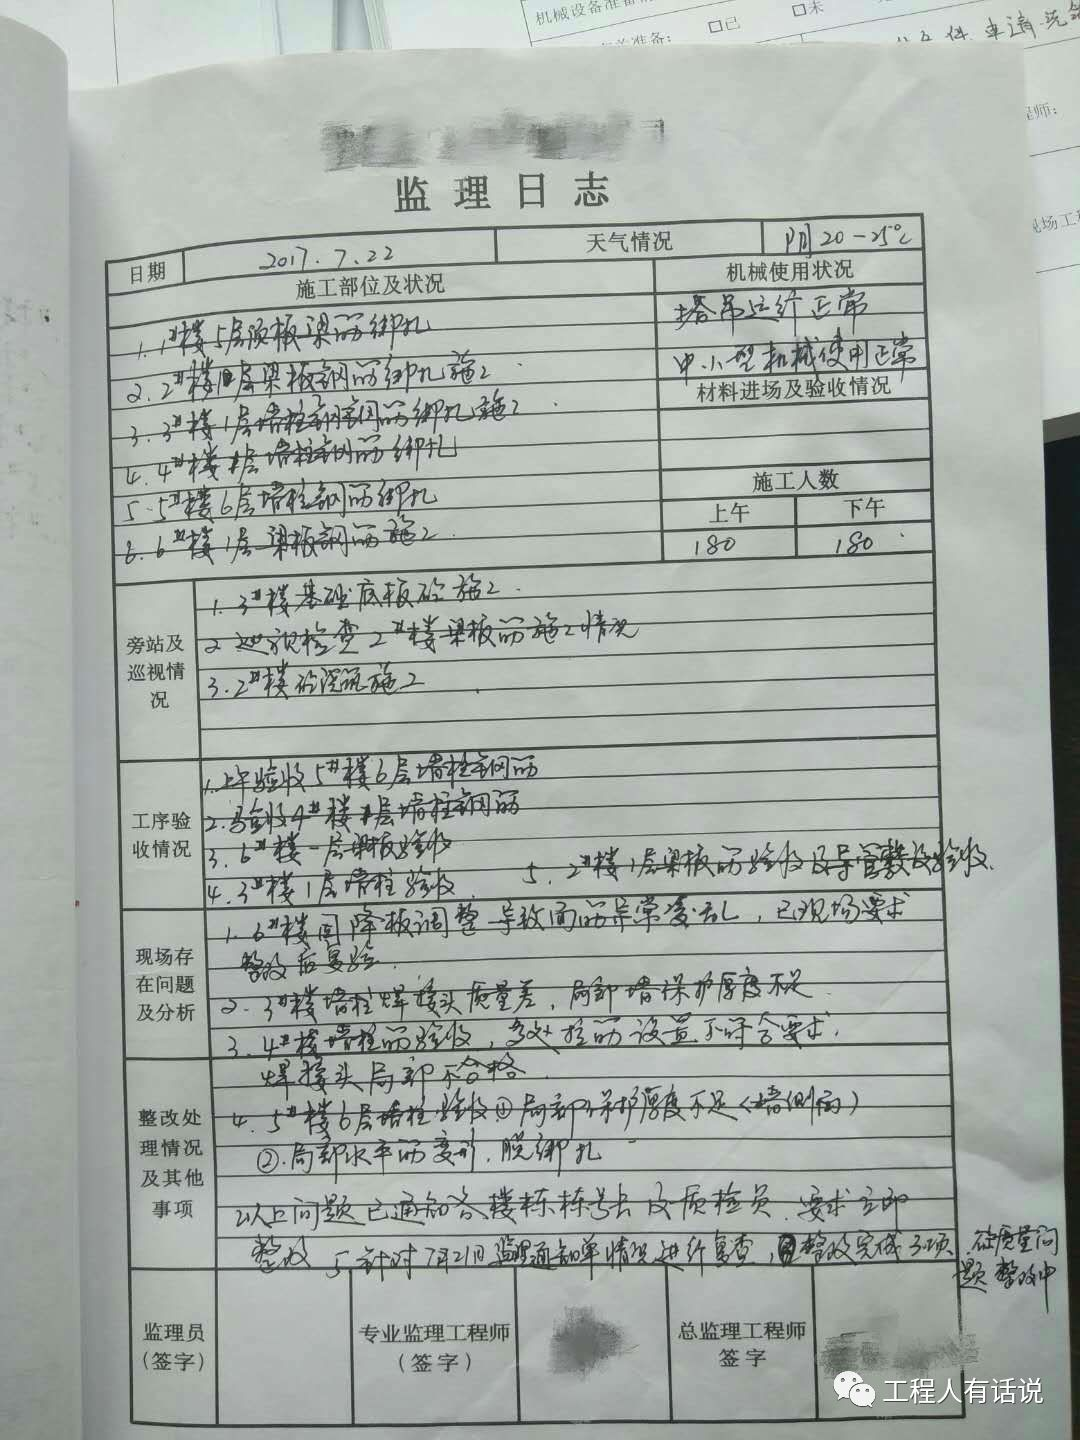 机械设备准备
□已
□未
准备：
程师：
现场工程
监理日志
日期 2017.7.22 天气情况 阴 20-25℃
施工部位及状况
机械使用状况
1.1#楼5层顶板梁筋绑扎
塔吊运行正常
2.2#楼 层梁板钢筋绑扎施工
中、小型机械使用正常
材料进场及验收情况
3.3#楼1层墙柱钢筋绑扎施工.
4.4#楼 层墙柱钢筋绑扎
施工人数
5.5#楼6层墙柱钢筋绑扎
上午 下午
6.6#楼1层梁板钢筋施工.
180 180
旁站及巡视情况
1.3#楼基础底板砼施工.
2.巡视检查2#楼梁板筋施工情况
3.2#楼砼浇筑施工
工序验收情况
1.上午验收5#楼6层墙柱钢筋
2.验收4#楼 层墙柱钢筋
3.6#楼一层梁板验收
4.3#楼1层墙柱验收.
5.2#楼1层梁板筋验收及导管敷设验收.
现场存在问题及分析
1.6#楼因降板调整导致面筋异常凌乱，已现场要求
整改后复验.
2.3#楼墙柱焊接头质量差，局部墙保护厚度不足.
3.4#楼墙柱筋验收，多处拉筋设置不符合要求.
整改处理情况及其他事项
焊接头局部不合格.
4.5#楼6层墙柱验收①局部保护厚度不足（墙侧面）
②.局部水平筋变形、脱绑扎
以上问题已通知各楼栋栋号长及质检员.要求立即
整改
5.针对7月21日监理通知单情况进行复查，整改完成3项
砼质量问
题整改中
监理员（签字）
专业监理工程师（签字）
总监理工程师签字
工程人有话说